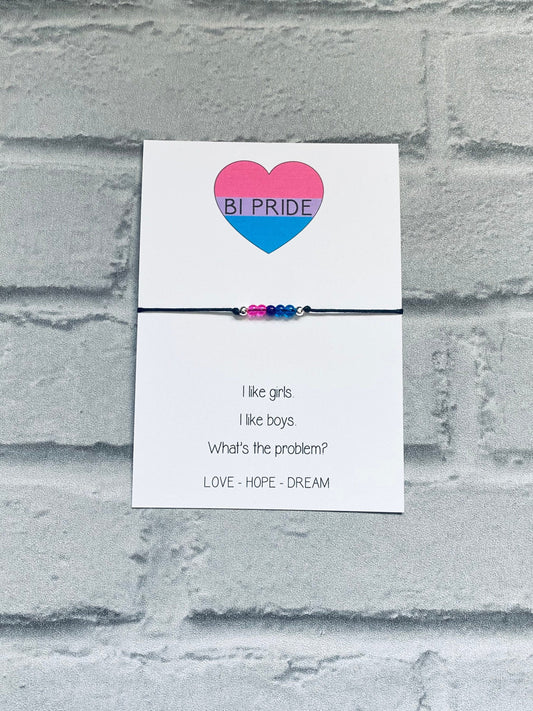 BI PRIDE
I like girls.
I like boys.
What's the problem?
LOVE - HOPE - DREAM